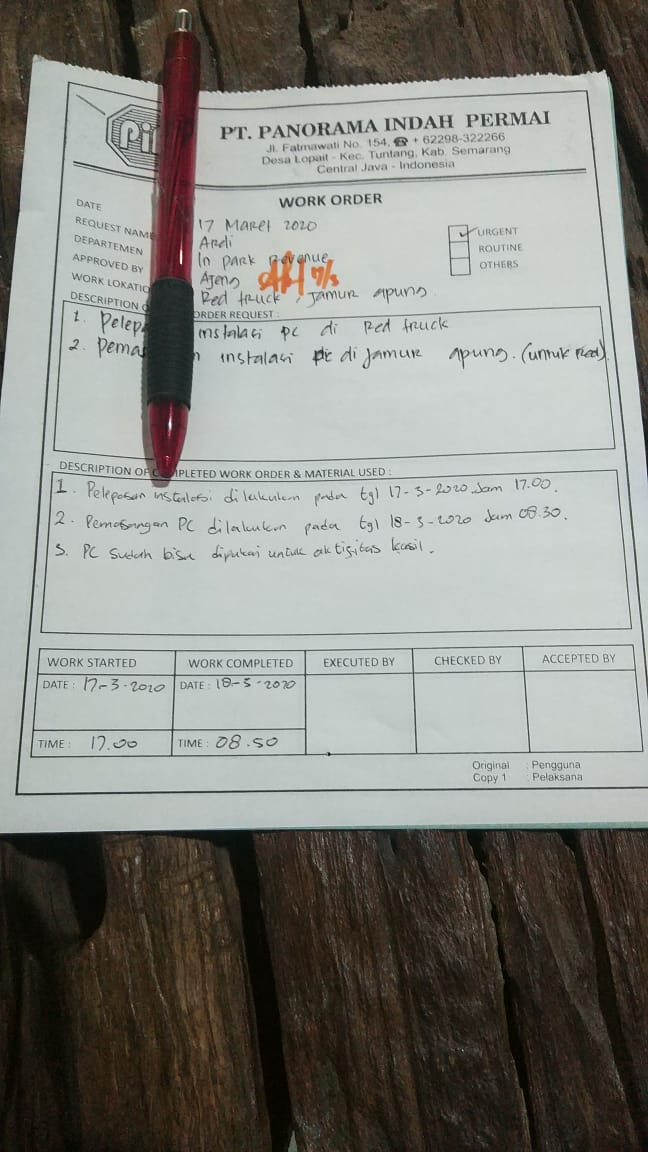 PT. PANORAMA INDAH PERMAI
Jl. Fatmawati No. 154, ☎ + 62298-322266
Desa Lopait - Kec. Tuntang, Kab. Semarang
Central Java - Indonesia
WORK ORDER
DATE 17 Maret 2020
REQUEST NAME Ardi
DEPARTEMEN In park revenue
APPROVED BY Ajeng
WORK LOKATIO Red truck, Jamur apung.
URGENT
ROUTINE
OTHERS
DESCRIPTION O ORDER REQUEST :
1. Pelepa instalasi PC di Red truck
2. Pemas n instalasi PC di Jamur apung. (untuk Red).
DESCRIPTION OF COMPLETED WORK ORDER & MATERIAL USED :
1. Pelepasan instalasi dilakukan pada tgl 17-3-2020 Jam 17.00.
2. Pemasangan PC dilakukan pada tgl 18-3-2020 Jam 08.30.
3. PC sudah bisa dipakai untuk aktifitas kasil.
WORK STARTED WORK COMPLETED EXECUTED BY CHECKED BY ACCEPTED BY
DATE : 17-3-2020 DATE : 18-3-2020
TIME : 17.00 TIME : 08.50
Original : Pengguna
Copy 1 : Pelaksana